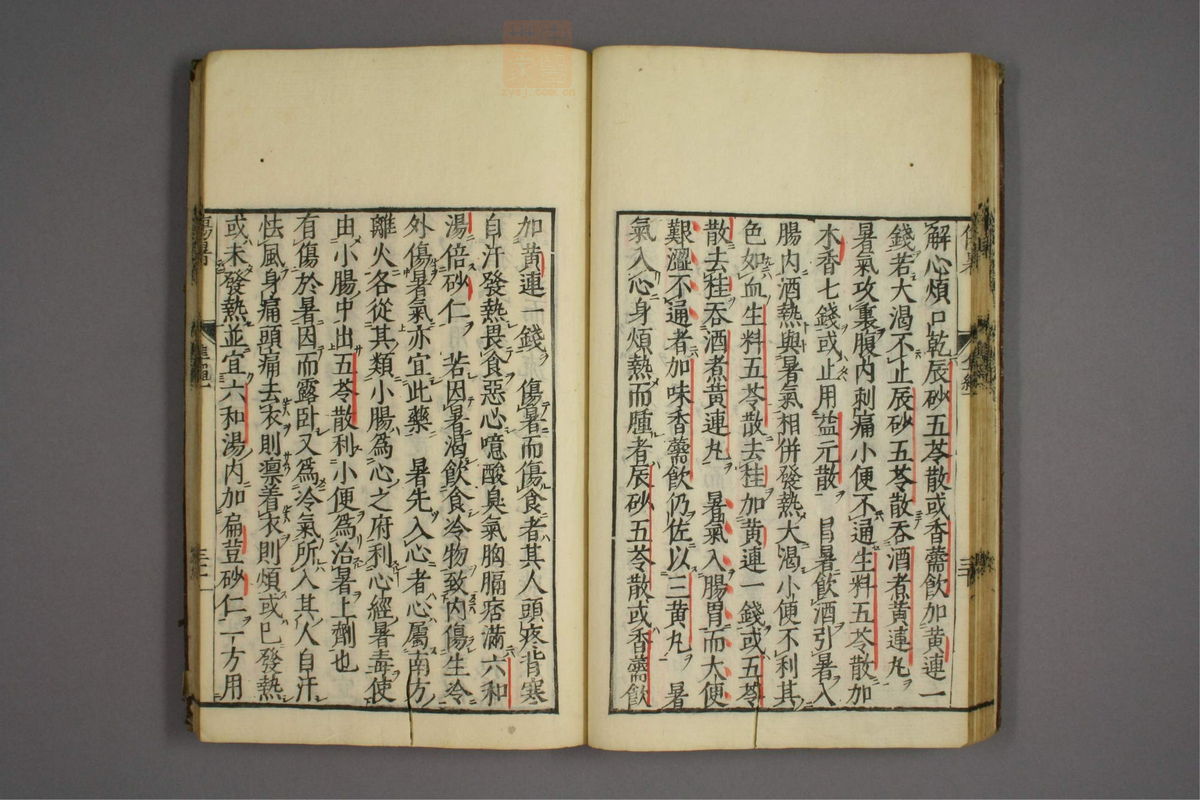 解心煩口乾辰砂五苓散或香薷飲加黄連一
錢若大渴不止辰砂五苓散吞酒煮黄連丸
暑氣攻裏腹內刺痛小便不通生料五苓散加
木香七錢或止用益元散　冒暑飲酒引暑入
腸內酒熱與暑氣相併發熱大渴小便不利其
色如血生料五苓散去桂加黄連一錢或五苓
散去桂吞酒煮黄連丸　暑氣入腸胃而大便
艱澀不通者加味香薷飲仍佐以三黄丸　暑
氣入心身煩熱而腫者辰砂五苓散或香薷飲
加黄連一錢　傷暑而傷食者其人頭疼背寒
自汗發熱畏食惡心噫酸臭氣胸膈痞滿六和
湯倍砂仁　若因暑渴飲食冷物致內傷生冷
外傷暑氣亦宜此藥　暑先入心者心屬南方
離火各從其類小腸為心之府利心經暑毒使
由小腸中出五苓散利小便為治暑上劑也
有傷於暑因而露卧又為冷氣所入其人自汗
怯風身痛頭痛去衣則凛着衣則煩或已發熱
或未發熱並宜六和湯內加扁荳砂仁一方用
傷暑
zysj.com.cn